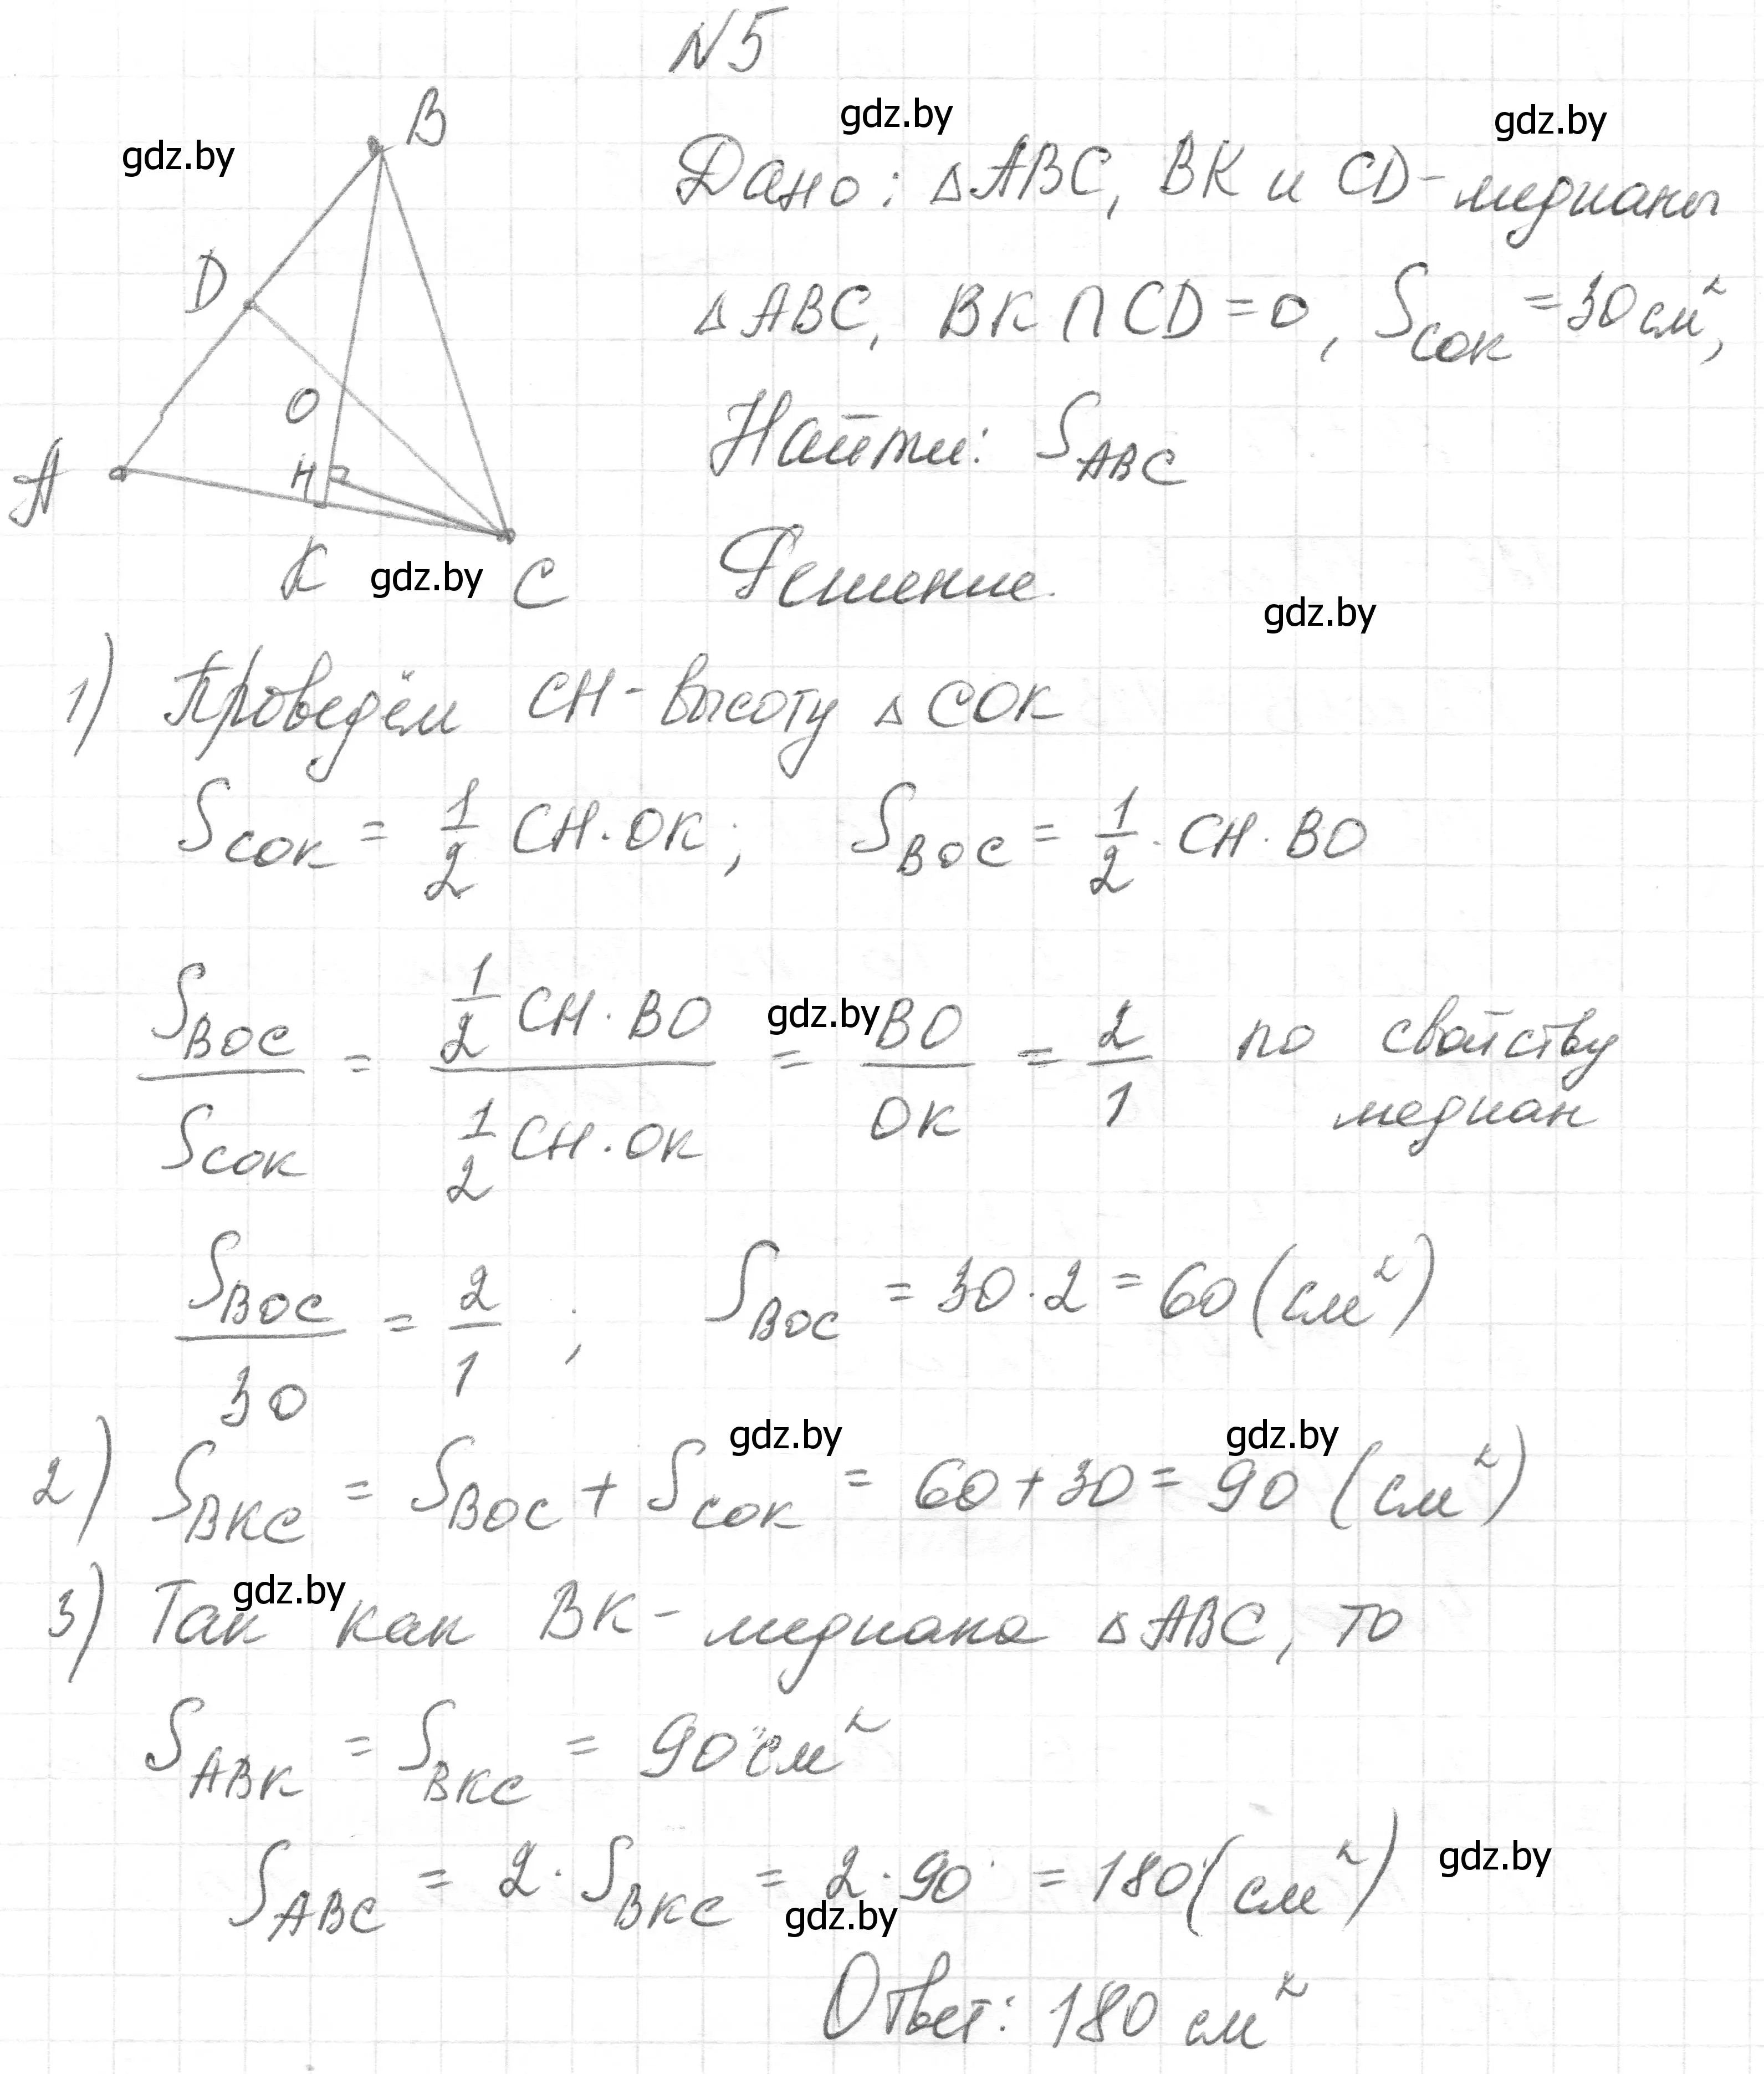 N5
B
gdz.by
gdz.by
gdz.by
Дано: △ABC, BK и CD-медианы
D
△ABC, BK ∩ CD = O, S_COK = 30 см²,
O
Найти: S_ABC
A
H
K
gdz.by
C
Решение.
gdz.by
1) Проведём CH - высоту △COK
S_COK = 1/2 CH · OK; S_BOC = 1/2 · CH · BO
S_BOC/S_COK = (1/2 CH · BO)/(1/2 CH · OK) = BO/OK = 2/1 по свойству
медиан
gdz.by
S_BOC/30 = 2/1; S_BOC = 30 · 2 = 60 (см²)
gdz.by
gdz.by
2) S_BKC = S_BOC + S_COK = 60 + 30 = 90 (см²)
gdz.by
3) Так как BK - медиана △ABC, то
S_ABK = S_BKC = 90 см²
S_ABC = 2 · S_BKC = 2 · 90 = 180 (см²)
gdz.by
gdz.by
Ответ: 180 см²